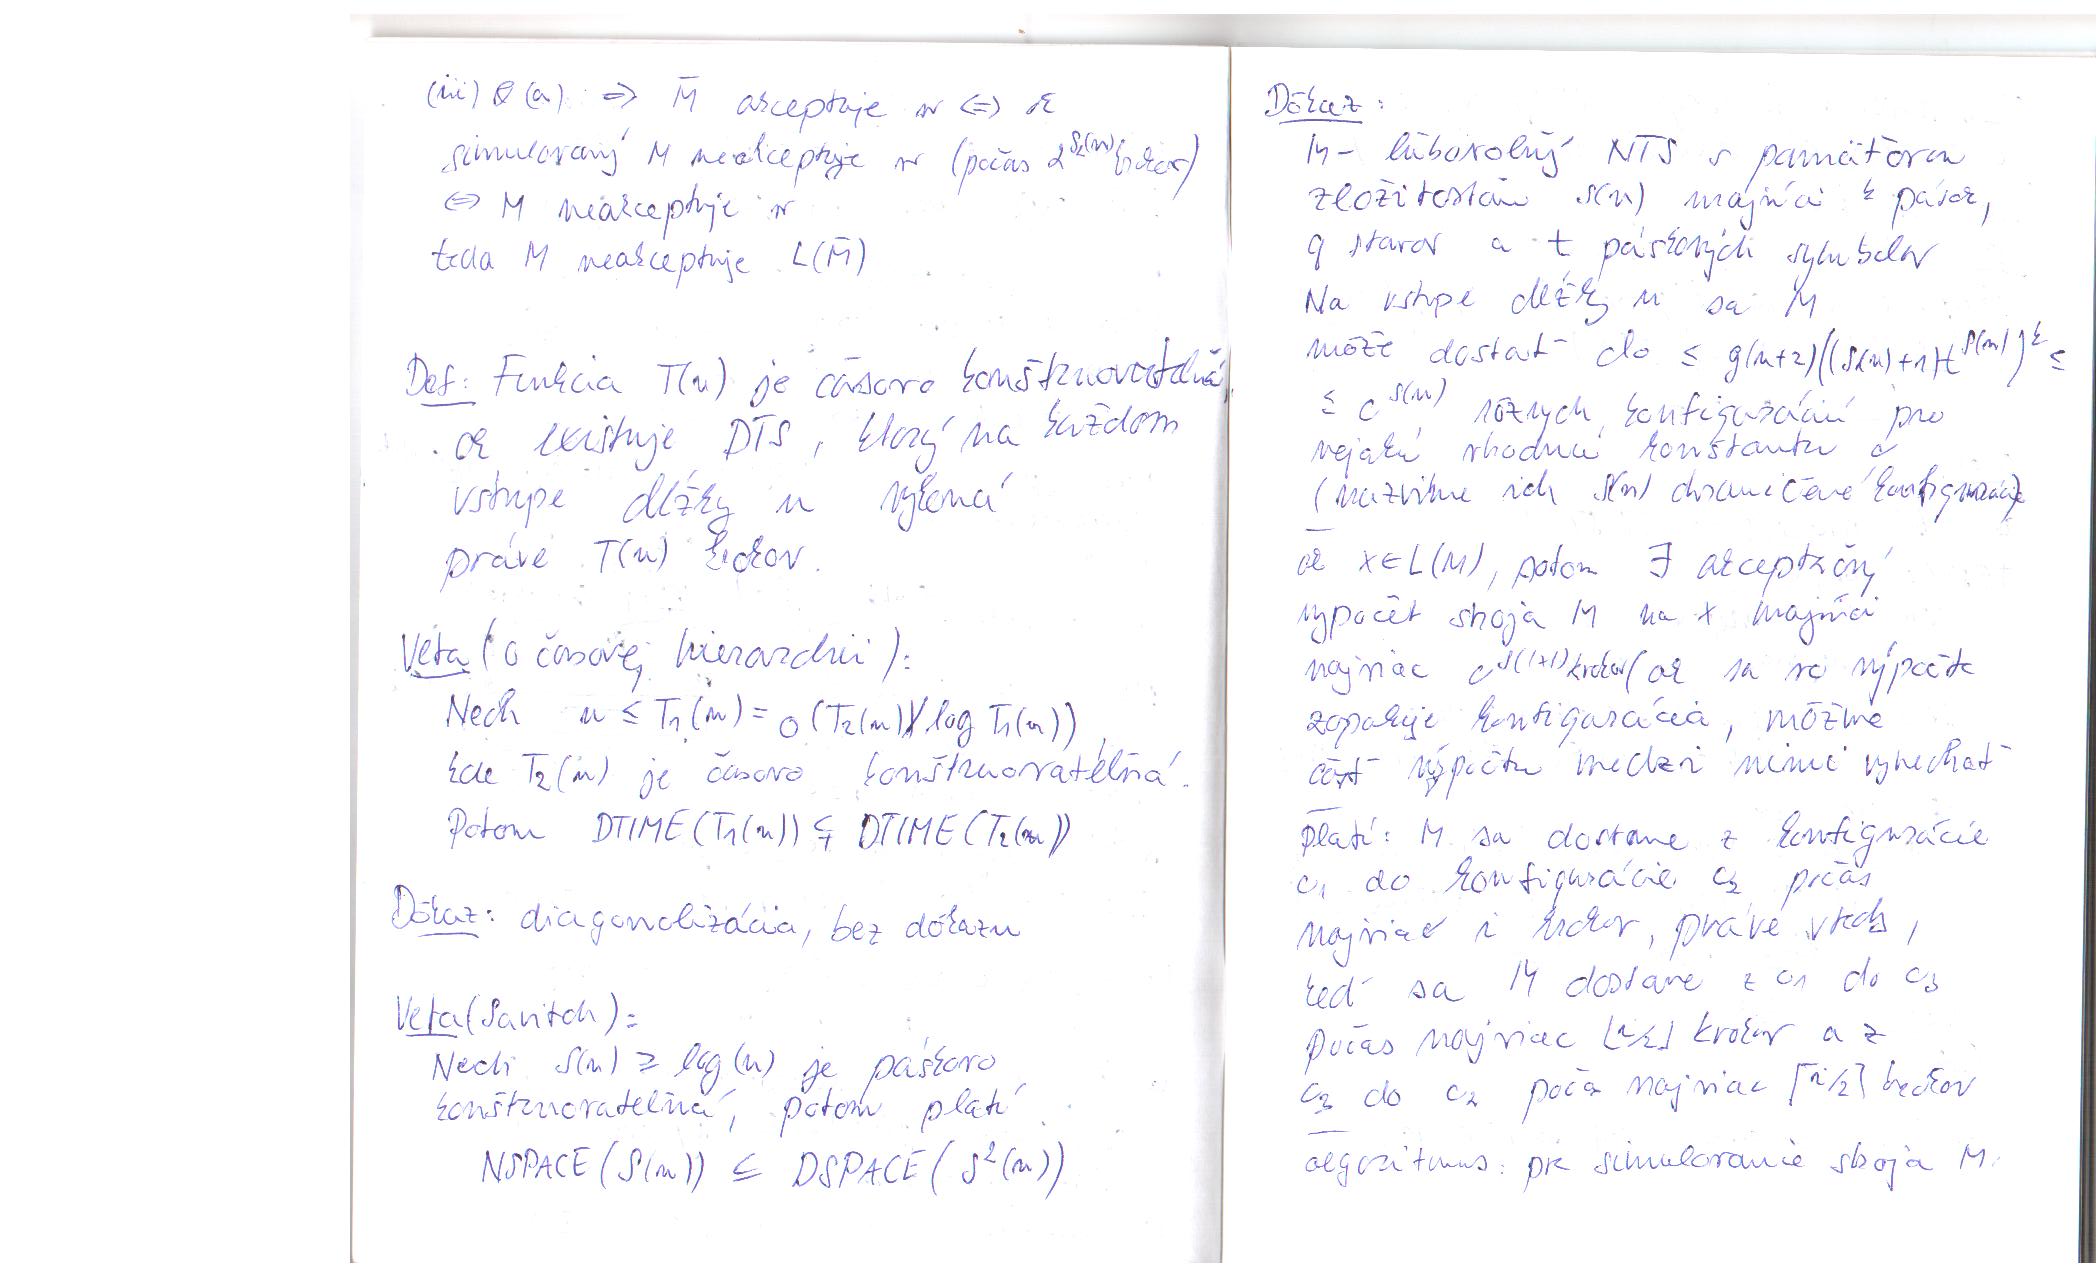 (iii) (a) ⇒ M̄ akceptuje w ⇔ ak
simulovaný M neakceptuje w (počas 2^{S₂(n)} krokov)
⇔ M neakceptuje w
teda M neakceptuje L(M̄)
Def: Funkcia T(n) je časovo konštruovateľná,
ak existuje DTS, ktorý na každom
vstupe dĺžky n vykoná
práve T(n) krokov.
Veta (o časovej hierarchii):
Nech n ≤ T₁(n) = o(T₂(n)/log T₁(n)),
kde T₂(n) je časovo konštruovateľná.
Potom DTIME(T₁(n)) ⊊ DTIME(T₂(n))
Dôkaz: diagonalizácia, bez dôkazu
Veta (Savitch):
Nech S(n) ≥ log(n) je páskovo
konštruovateľná, potom platí
NSPACE(S(n)) ⊆ DSPACE(S²(n))
Dôkaz:
M – ľubovoľný NTS s pamäťovou
zložitosťou S(n) majúci k pások,
q stavov a t páskových symbolov
Na vstupe dĺžky n sa M
môže dostať do ≤ q(n+2)((S(n)+1)t^{S(n)})^k ≤
≤ c^{S(n)} rôznych konfigurácií pro
nejakú vhodnú konštantu c
(nazvime ich S(n) ohraničené konfigurácie
– ak x∈L(M), potom ∃ akceptačný
výpočet stroja M na x majúci
najviac c^{S(|x|)} krokov (ak sa vo výpočte
zopakuje konfigurácia, môžme
časť výpočtu medzi nimi vynechať
– platí: M sa dostane z konfigurácie
c₁ do konfigurácie c₂ počas
najviac i krokov, práve vtedy,
keď sa M dostane z c₁ do c₃
počas najviac ⌊i/2⌋ krokov a z
c₃ do c₂ počas najviac ⌈i/2⌉ krokov
– algoritmus: pre simulovanie stroja M